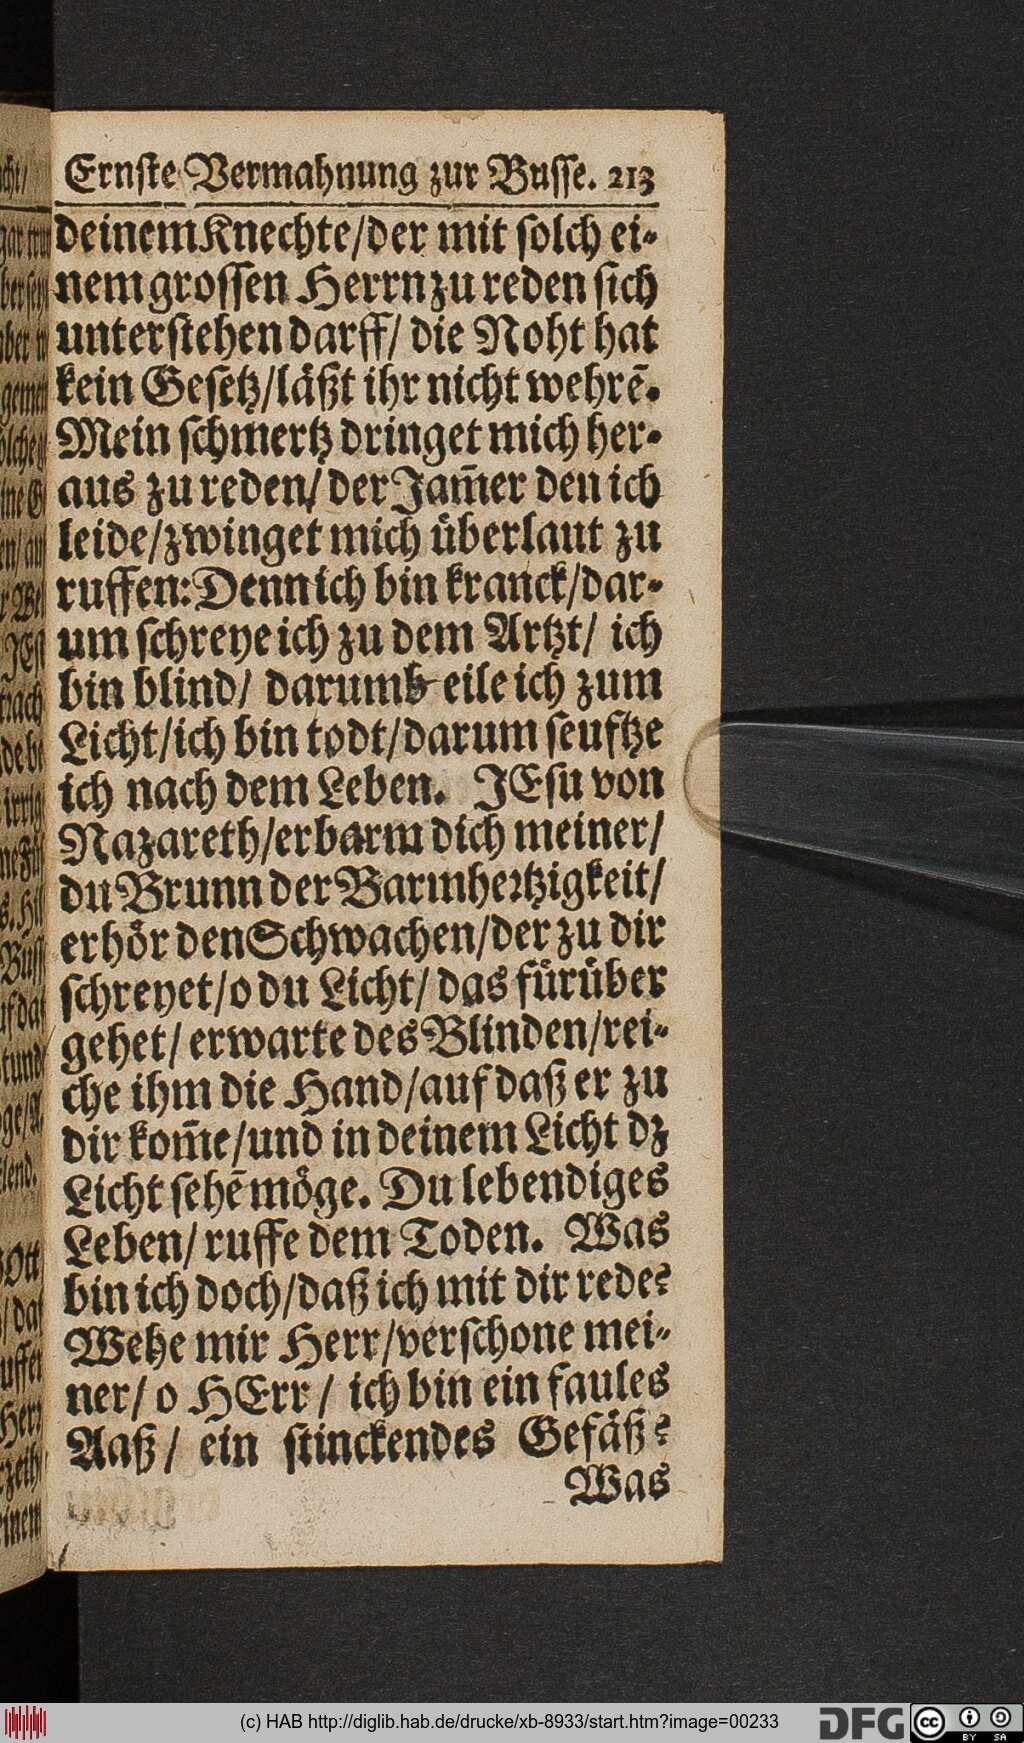 Ernste Vermahnung zur Busse. 213
deinem Knechte/der mit solch ei-
nem grossen Herrn zu reden sich
unterstehen darff/ die Noht hat
kein Gesetz/läßt ihr nicht wehrē.
Mein schmertz dringet mich her-
aus zu reden/ der Jam̄er den ich
leide/zwinget mich überlaut zu
ruffen: Denn ich bin kranck/dar-
um schreye ich zu dem Artzt/ ich
bin blind/ darumb eile ich zum
Licht/ich bin todt/darum seuftze
ich nach dem Leben. JEsu von
Nazareth/erbarm dich meiner/
du Brunn der Barmhertzigkeit/
erhör den Schwachen/der zu dir
schreyet/o du Licht/ das fürüber
gehet/ erwarte des Blinden/rei-
che ihm die Hand/auf daß er zu
dir kom̄e/und in deinem Licht dz
Licht sehē möge. Du lebendiges
Leben/ ruffe dem Toden. Was
bin ich doch/daß ich mit dir rede?
Wehe mir Herr/verschone mei-
ner/ o HErr/ ich bin ein faules
Aaß/ ein stinckendes Gefäß?
Was
(c) HAB http://diglib.hab.de/drucke/xb-8933/start.htm?image=00233
DFG
cc BY SA